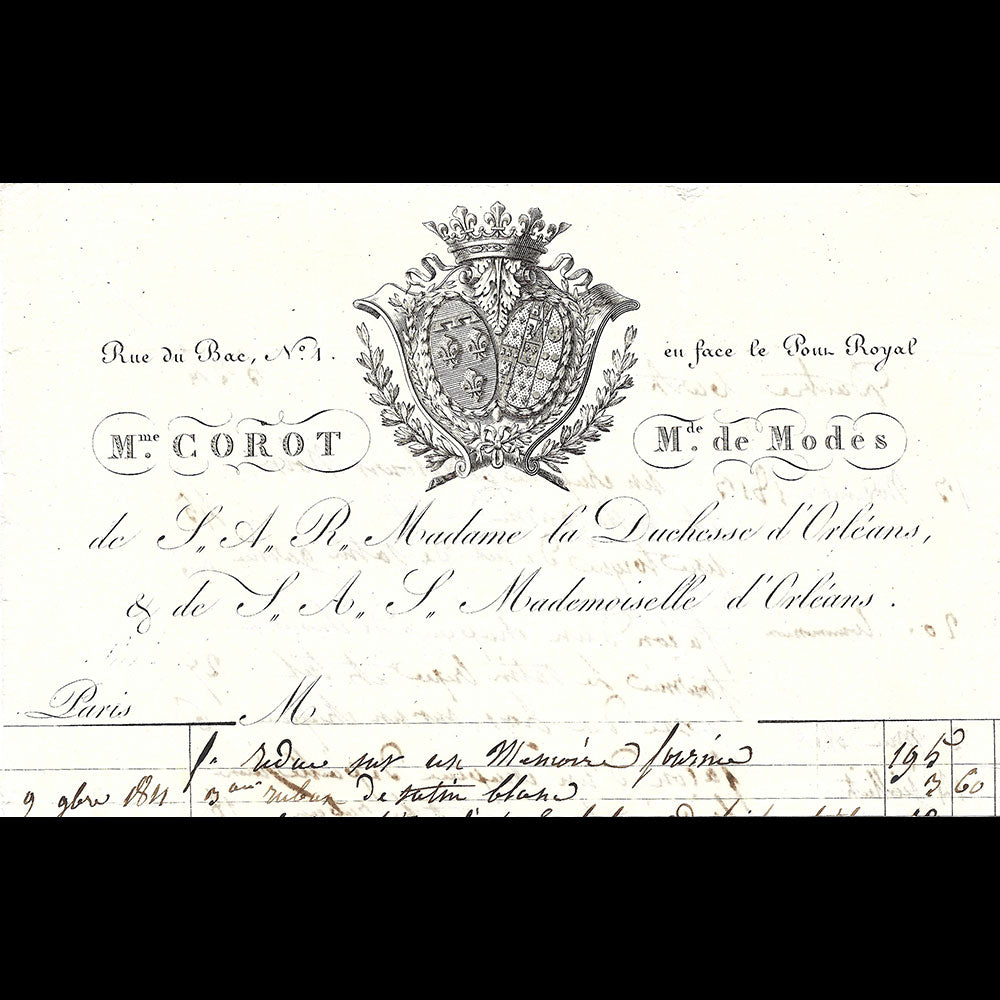 Rue du Bac, N.º 1. en face le Pont Royal
M.me COROT M.de de Modes
de S,, A,, R,, Madame la Duchesse d'Orléans,
& de S,, A,, S,, Mademoiselle d'Orléans.
Paris M
redue sur un Mémoire fournie 195
9 9bre 3 aun ruban de satin blanc 3 60